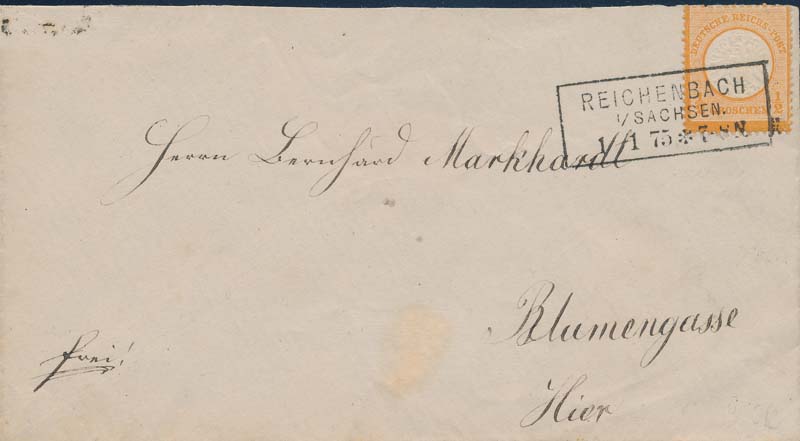 DEUTSCHE REICHS-POST
1/2 GROSCHEN
REICHENBACH
I/SACHSEN.
1/1 75 * 7-8 N.
Herrn Bernhard Markhardt
Blumengasse
Hier
frei!